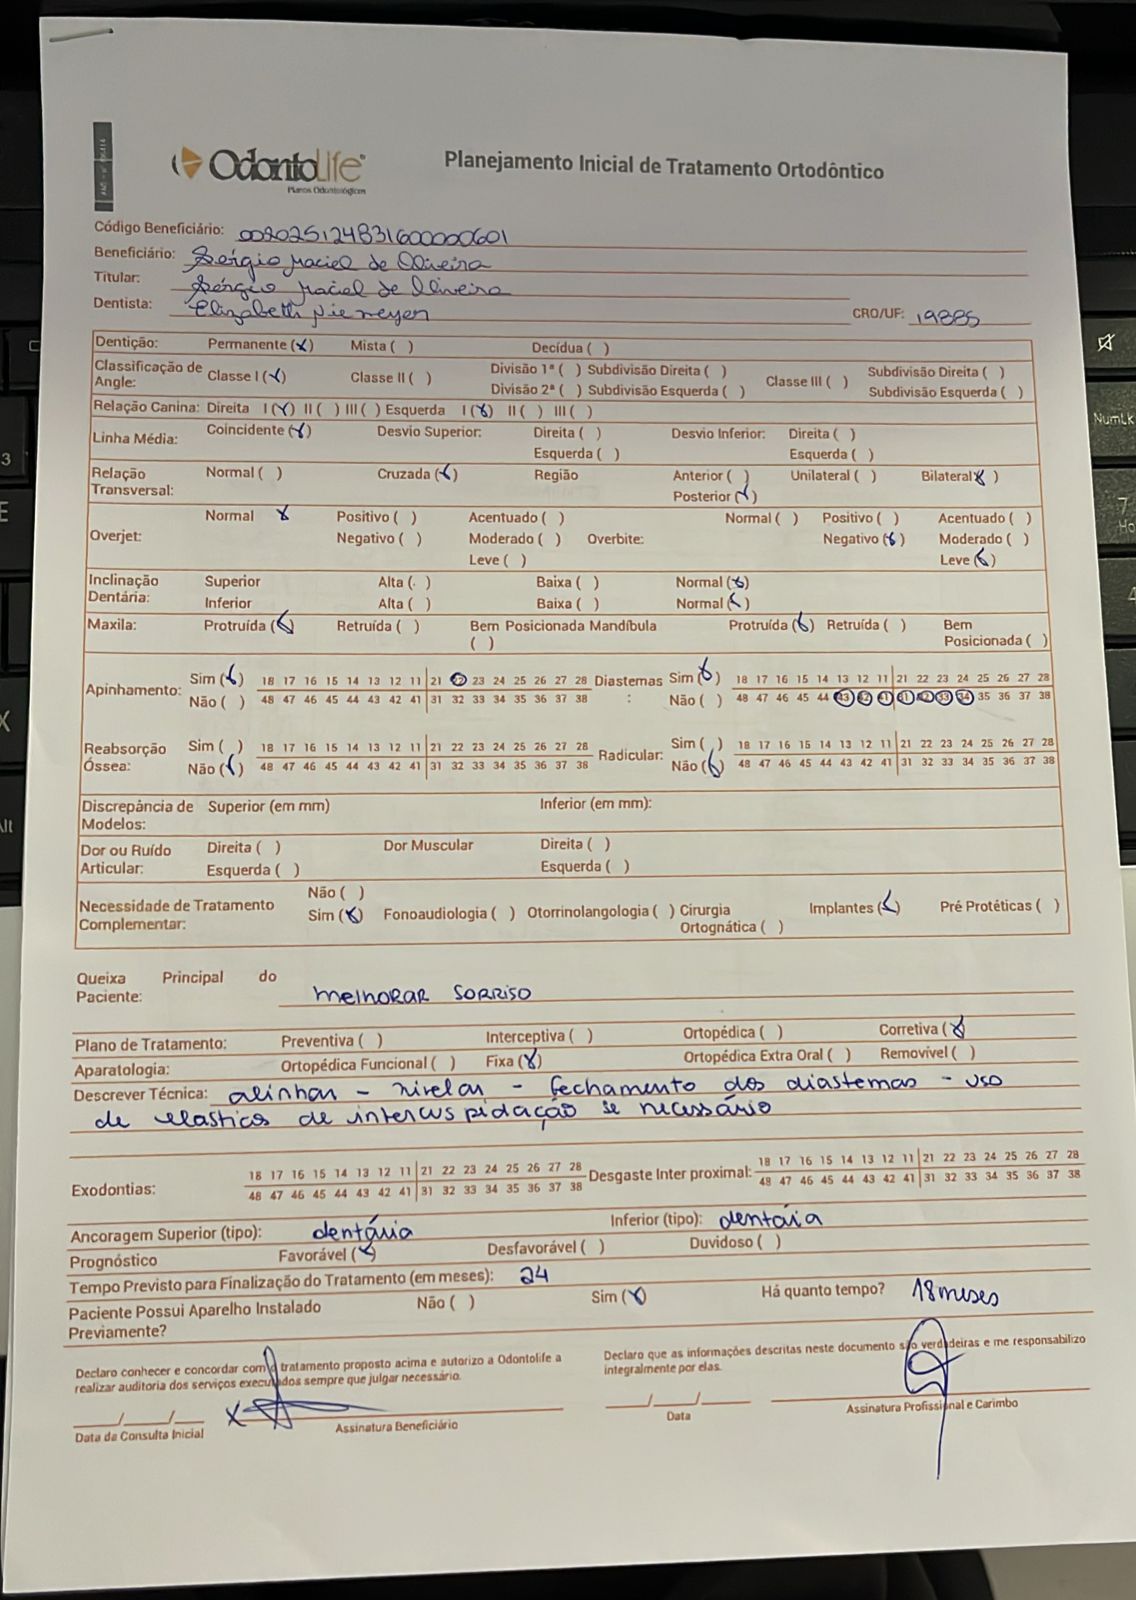 OdontoLife®
Planos Odontológicos
Planejamento Inicial de Tratamento Ortodôntico
Código Beneficiário: 00202512483160000601
Beneficiário: Sérgio Maciel de Oliveira
Titular: Sérgio Maciel de Oliveira
Dentista: Elizabeth Niemeyer CRO/UF: 19885
Dentição: Permanente (x) Mista ( ) Decídua ( )
Classificação de Angle: Classe I (x) Classe II ( ) Divisão 1ª ( ) Subdivisão Direita ( ) Classe III ( ) Subdivisão Direita ( )
Divisão 2ª ( ) Subdivisão Esquerda ( ) Subdivisão Esquerda ( )
Relação Canina: Direita I (x) II ( ) III ( ) Esquerda I (x) II ( ) III ( )
Linha Média: Coincidente (x) Desvio Superior: Direita ( ) Desvio Inferior: Direita ( )
Esquerda ( ) Esquerda ( )
Relação Transversal: Normal ( ) Cruzada (x) Região Anterior ( ) Unilateral ( ) Bilateral (x)
Posterior (x)
Overjet: Normal x Positivo ( ) Acentuado ( ) Overbite: Normal ( ) Positivo ( ) Acentuado ( )
Negativo ( ) Moderado ( ) Negativo (x) Moderado ( )
Leve ( ) Leve (x)
Inclinação Dentária: Superior Alta ( ) Baixa ( ) Normal (x)
Inferior Alta ( ) Baixa ( ) Normal (x)
Maxila: Protruída (x) Retruída ( ) Bem Posicionada ( ) Mandíbula Protruída (x) Retruída ( ) Bem Posicionada ( )
Apinhamento: Sim (x) 18 17 16 15 14 13 12 11 21 22 23 24 25 26 27 28 Diastemas: Sim (x) 18 17 16 15 14 13 12 11 21 22 23 24 25 26 27 28
Não ( ) 48 47 46 45 44 43 42 41 31 32 33 34 35 36 37 38 Não ( ) 48 47 46 45 44 43 42 41 31 32 33 34 35 36 37 38
Reabsorção Óssea: Sim ( ) 18 17 16 15 14 13 12 11 21 22 23 24 25 26 27 28 Radicular: Sim ( ) 18 17 16 15 14 13 12 11 21 22 23 24 25 26 27 28
Não (x) 48 47 46 45 44 43 42 41 31 32 33 34 35 36 37 38 Não (x) 48 47 46 45 44 43 42 41 31 32 33 34 35 36 37 38
Discrepância de Modelos: Superior (em mm) Inferior (em mm):
Dor ou Ruído Articular: Direita ( ) Dor Muscular Direita ( )
Esquerda ( ) Esquerda ( )
Necessidade de Tratamento Complementar: Não ( )
Sim (x) Fonoaudiologia ( ) Otorrinolangologia ( ) Cirurgia Ortognática ( ) Implantes (x) Pré Protéticas ( )
Queixa Principal do Paciente: melhorar sorriso
Plano de Tratamento: Preventiva ( ) Interceptiva ( ) Ortopédica ( ) Corretiva (x)
Aparatologia: Ortopédica Funcional ( ) Fixa (x) Ortopédica Extra Oral ( ) Removível ( )
Descrever Técnica: alinhar - nivelar - fechamento dos diastemas - uso
de elasticos de intercuspidação se necessário
Exodontias: 18 17 16 15 14 13 12 11 21 22 23 24 25 26 27 28 Desgaste Inter proximal: 18 17 16 15 14 13 12 11 21 22 23 24 25 26 27 28
48 47 46 45 44 43 42 41 31 32 33 34 35 36 37 38 48 47 46 45 44 43 42 41 31 32 33 34 35 36 37 38
Ancoragem Superior (tipo): dentária Inferior (tipo): dentária
Prognóstico Favorável (x) Desfavorável ( ) Duvidoso ( )
Tempo Previsto para Finalização do Tratamento (em meses): 24
Paciente Possui Aparelho Instalado Previamente? Não ( ) Sim (x) Há quanto tempo? 18 meses
Declaro conhecer e concordar com o tratamento proposto acima e autorizo a Odontolife a
realizar auditoria dos serviços executados sempre que julgar necessário.
Declaro que as informações descritas neste documento são verdadeiras e me responsabilizo
integralmente por elas.
___/___/___ x
Data da Consulta Inicial Assinatura Beneficiário
___/___/___
Data Assinatura Profissional e Carimbo
NumLk